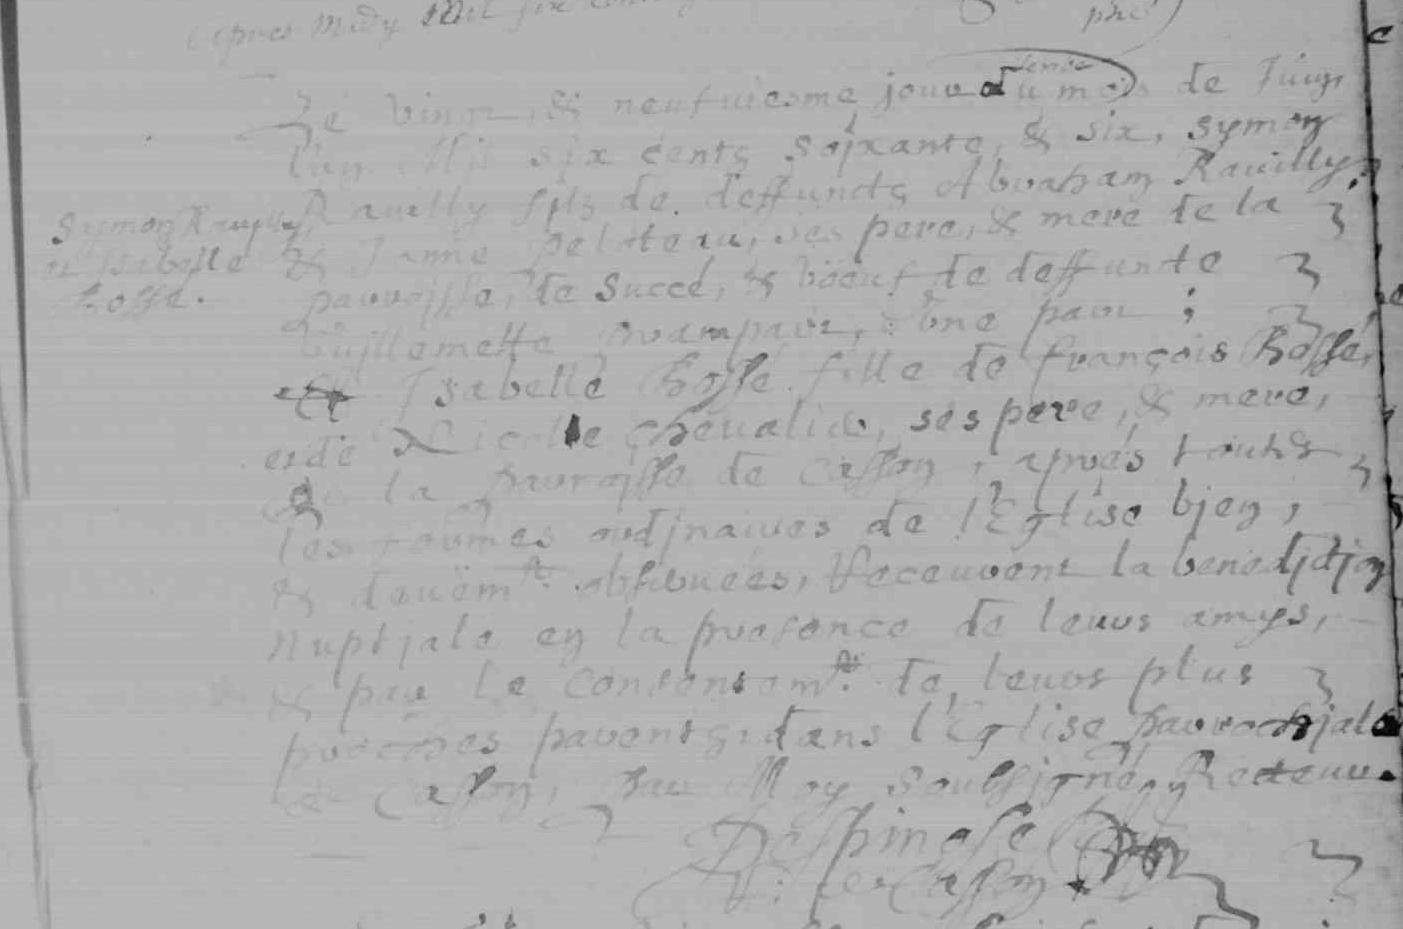 apres midy
Le vingt & neufuiesme jour du mois de Juin,
l'an Mil six cents soixante, & six, symon
Rauilly fils de deffuncts Abraham Rauilly,
& Janne peloteau, ses pere, & mere de la
Symon Rauilly,
& Isabelle
hosse.
parroisse, de Succé, & voeuf de deffunte
Guillemette d'une part ;
Isabelle hossé fille de françois hossé,
et de Nicolle cheualier, ses pere, & mere,
de la parroisse de Casson, aprés toutes
les formes ordjnaires de l'Eglise bjen,
& deuëmt. obseruées, Receurent la benedjctjon
nuptjale en la presence de leurs amys,
& par le Consentemt. de leurs plus
proches parents, dans l'Eglise parrochjale
de Casson, par Moy soubsigné, Recteur.
Despinose
R: de Casson